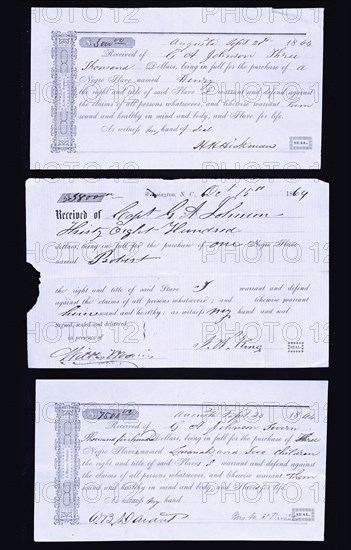 $3000.00 Augusta Sept 20th 1864
Received of G A Johnson Three
Thousand Dollars, being in full for the purchase of a
Negro Slave named Henry
the right and title of said Slave I warrant and defend against
the claims of all persons whatsoever, and likewise warrant him
sound and healthy in mind and body, and Slave for life.
As witness my hand and seal
H. H. Hickman SEAL.
$3800.00 Wilmington, N. C., Oct 15th 1864
Received of Capt G A Johnson
Thirty Eight Hundred
dollars, being in full for the purchase of one Negro Slave
named Robert
the right and title of said Slave I warrant and defend
against the claims of all persons whatsoever; and likewise warrant
him sound and healthy; as witness my hand and seal
Signed, sealed and delivered,
in presence of
J. W. King SEAL
$7500.00 Augusta Sept 20 1864
Received of G A Johnson Seven
Thousand five hundred Dollars, being in full for the purchase of Three
Negro Slaves named Savannah and Two children
the right and title of said Slaves I warrant and defend
against the claims of all persons whatsoever, and likewise warrant them
sound and healthy in mind and body, and Slaves for life.
As witness my hand
SEAL.
PHOTO12